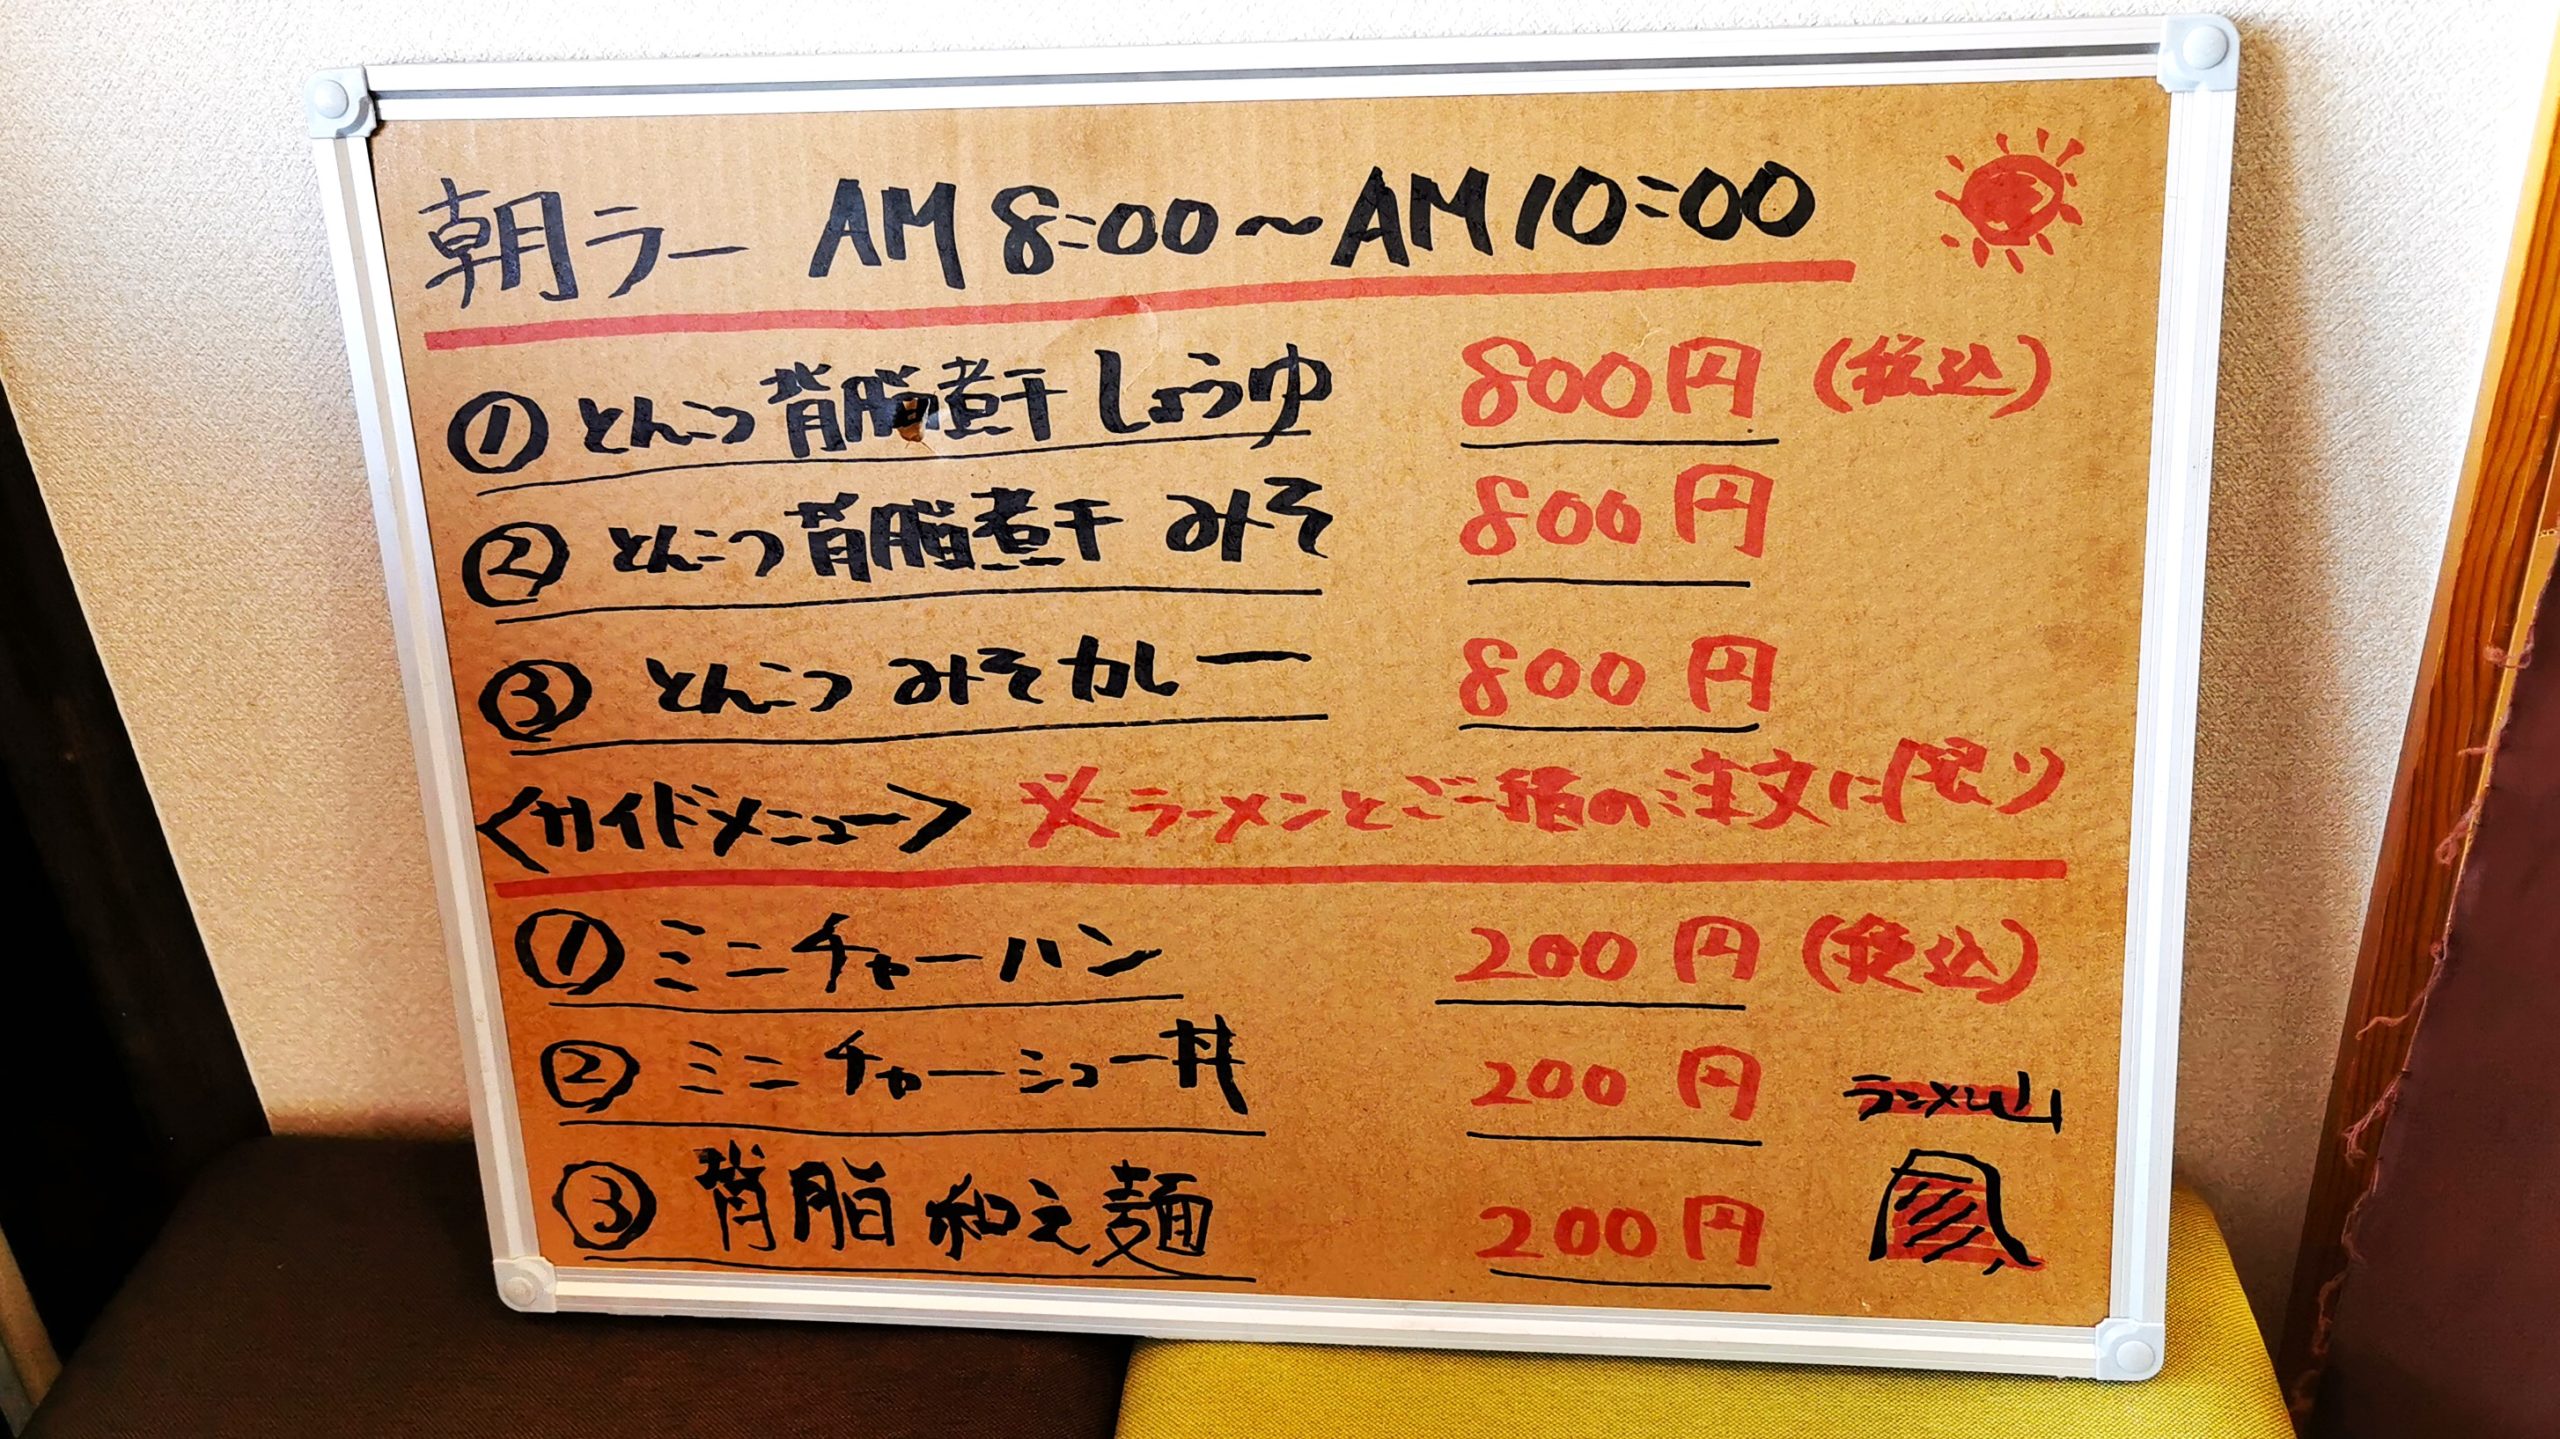 朝ラー AM 8:00〜AM 10:00
① とんこつ 背脂煮干 しょうゆ 800円 (税込)
② とんこつ 背脂煮干 みそ 800円
③ とんこつ みそカレー 800円
<サイドメニュー> ※ラーメンとご一緒の注文に限り
① ミニチャーハン 200円 (税込)
② ミニチャーシュー丼 200円
③ 背脂 和え麺 200円
ラーメン山